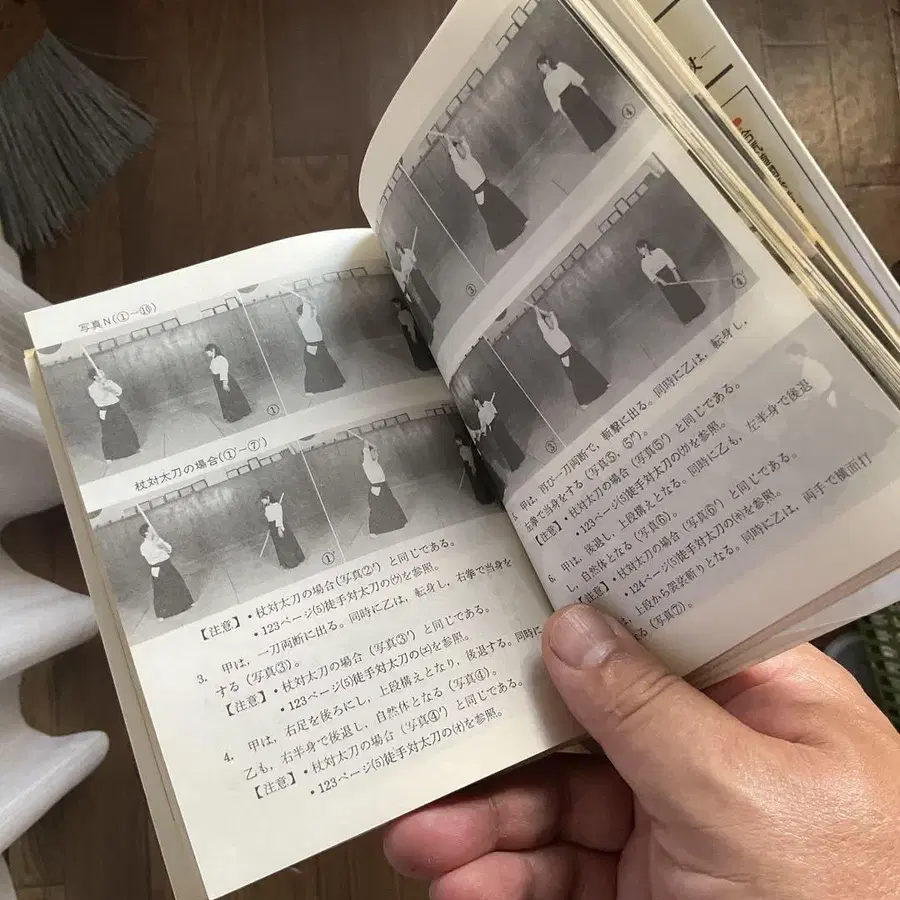 写真N(①―⑩)
①
杖対太刀の場合(①'―⑦')
①'
【注意】・杖対太刀の場合(写真②')と同じである。
・123ページ(5)徒手対太刀の(ウ)を参照。
3. 甲は，一刀両断に出る。同時に乙は，転身し，右拳で当身を
する(写真③)。
【注意】・杖対太刀の場合(写真③')と同じである。
・123ページ(5)徒手対太刀の(エ)を参照。
4. 甲は，右足を後ろにし，上段構えとなり，後退する。同時に
乙も，右半身で後退し，自然体となる(写真④)。
【注意】・杖対太刀の場合(写真④')と同じである。
・123ページ(5)徒手対太刀の(オ)を参照。
③
④
③'
④
甲は，再び一刀両断で，斬撃に出る。同時に乙は，転身し，
右拳で当身をする(写真⑤，⑤')。
【注意】・杖対太刀の場合(写真⑤')と同じである。
・123ページ(5)徒手対太刀の(カ)を参照。
6. 甲は，後退し，上段構えとなる。同時に乙も，左半身で後退
し，自然体となる(写真⑥)。
【注意】・杖対太刀の場合(写真⑥')と同じである。
・124ページ(5)徒手対太刀の(キ)を参照。
上段から袈裟斬りとなる。同時に乙は，両手で横面打
る(写真⑦)。